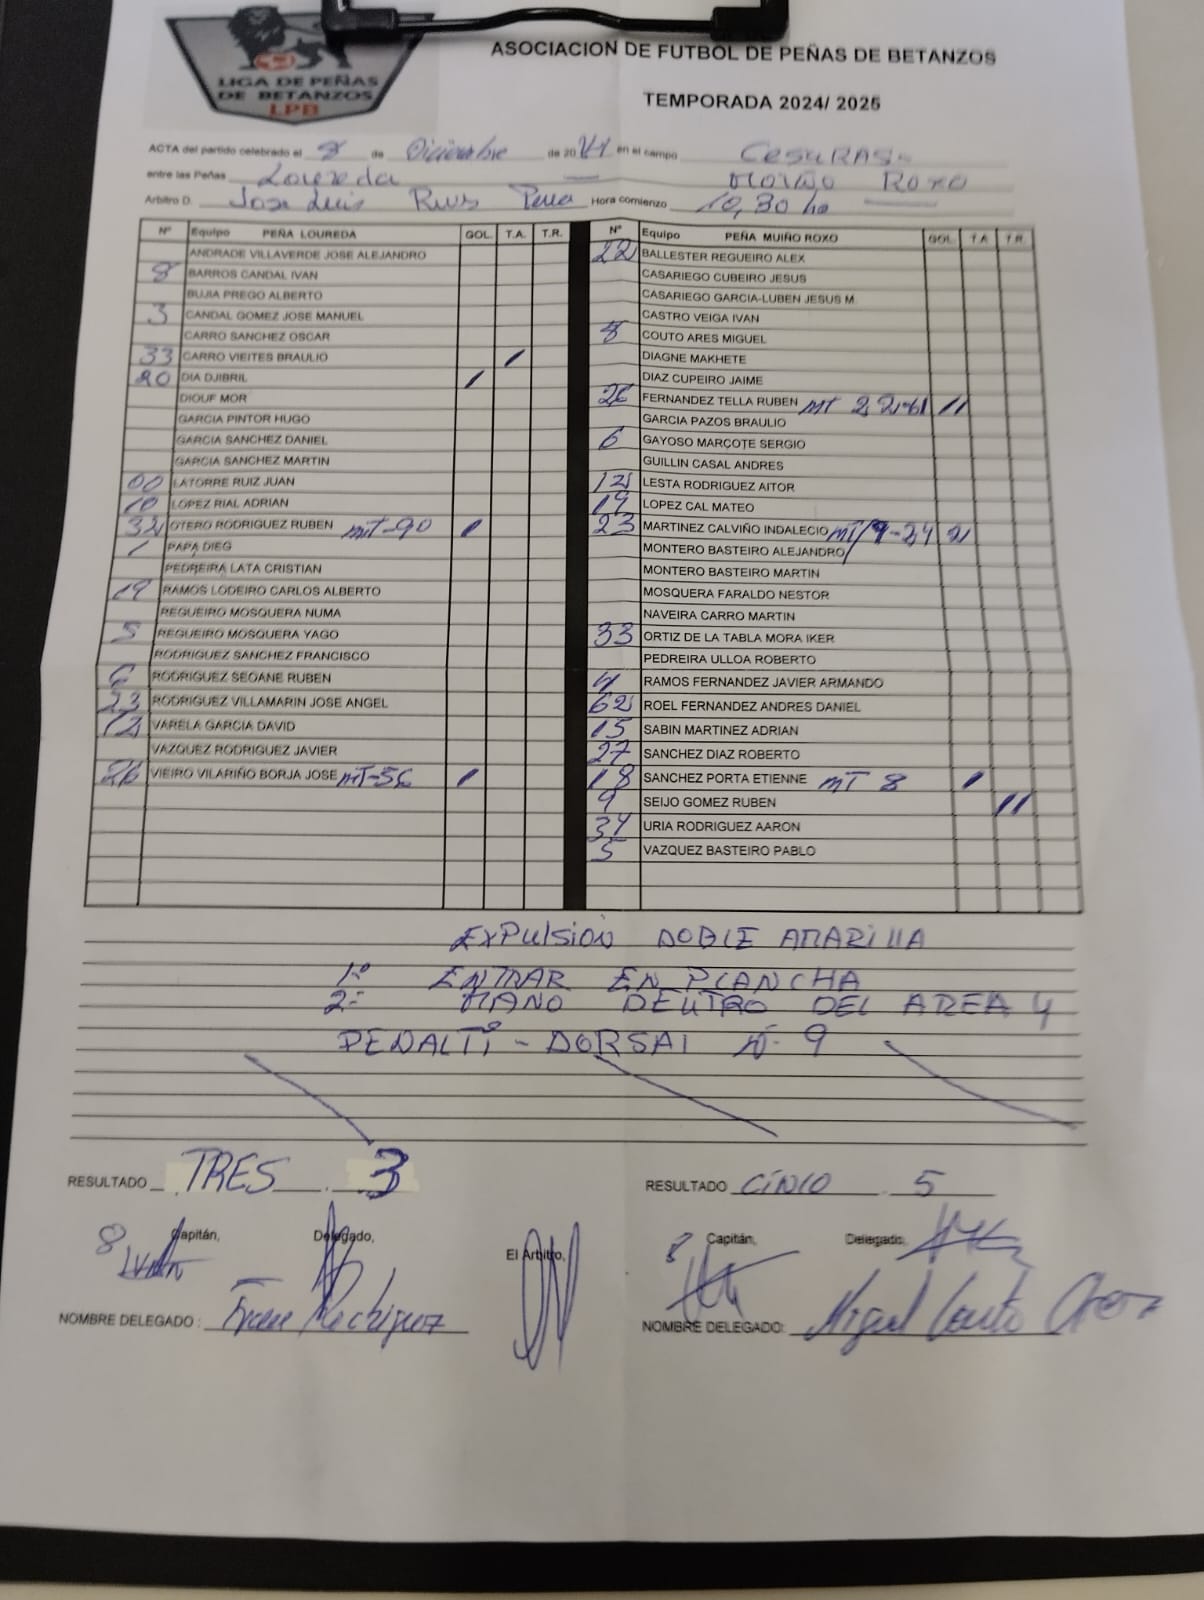 LIGA DE PEÑAS
DE BETANZOS
LPB
ASOCIACION DE FUTBOL DE PEÑAS DE BETANZOS
TEMPORADA 2024/ 2025
ACTA del partido celebrado el 8 de Diciembre de 2024 en el campo CESURAS-
entre las Peñas Loureda — MOIÑO ROXO
Arbitro D. Jose Luis Rios Pena Hora comienzo 10,30 ha
Nº Equipo PEÑA LOUREDA GOL. T.A. T.R.
ANDRADE VILLAVERDE JOSE ALEJANDRO
8 BARROS CANDAL IVAN
BUJIA PREGO ALBERTO
3 CANDAL GOMEZ JOSE MANUEL
CARRO SANCHEZ OSCAR
33 CARRO VIEITES BRAULIO /
20 DIA DJIBRIL /
DIOUF MOR
GARCIA PINTOR HUGO
GARCIA SANCHEZ DANIEL
GARCIA SANCHEZ MARTIN
00 LATORRE RUIZ JUAN
10 LOPEZ RIAL ADRIAN
32 OTERO RODRIGUEZ RUBEN mT-90 /
1 PAPA DIEG
PEDREIRA LATA CRISTIAN
19 RAMOS LODEIRO CARLOS ALBERTO
REGUEIRO MOSQUERA NUMA
5 REGUEIRO MOSQUERA YAGO
RODRIGUEZ SANCHEZ FRANCISCO
6 RODRIGUEZ SEOANE RUBEN
23 RODRIGUEZ VILLAMARIN JOSE ANGEL
12 VARELA GARCIA DAVID
VAZQUEZ RODRIGUEZ JAVIER
26 VIEIRO VILARIÑO BORJA JOSE mT-56 /
Nº Equipo PEÑA MUIÑO ROXO GOL. T.A. T.R.
22 BALLESTER REGUEIRO ALEX
CASARIEGO CUBEIRO JESUS
CASARIEGO GARCIA-LUBEN JESUS M.
CASTRO VEIGA IVAN
8 COUTO ARES MIGUEL
DIAGNE MAKHETE
DIAZ CUPEIRO JAIME
26 FERNANDEZ TELLA RUBEN mT //
GARCIA PAZOS BRAULIO
6 GAYOSO MARCOTE SERGIO
GUILLIN CASAL ANDRES
12 LESTA RODRIGUEZ AITOR
19 LOPEZ CAL MATEO
23 MARTINEZ CALVIÑO INDALECIO mT
MONTERO BASTEIRO ALEJANDRO
MONTERO BASTEIRO MARTIN
MOSQUERA FARALDO NESTOR
NAVEIRA CARRO MARTIN
33 ORTIZ DE LA TABLA MORA IKER
PEDREIRA ULLOA ROBERTO
4 RAMOS FERNANDEZ JAVIER ARMANDO
62 ROEL FERNANDEZ ANDRES DANIEL
15 SABIN MARTINEZ ADRIAN
27 SANCHEZ DIAZ ROBERTO
18 SANCHEZ PORTA ETIENNE mT 8 /
9 SEIJO GOMEZ RUBEN //
34 URIA RODRIGUEZ AARON
5 VAZQUEZ BASTEIRO PABLO
EXPULSION DOBLE AMARILLA
1º ENTRAR EN PLANCHA
2º MANO DENTRO DEL AREA Y
PENALTI - DORSAL Nº 9
RESULTADO TRES 3
RESULTADO CINCO 5
8 Capitán, Delegado, El Arbitro, 8 Capitán, Delegado,
NOMBRE DELEGADO : Rodriguez
NOMBRE DELEGADO: Miguel Couto Ares